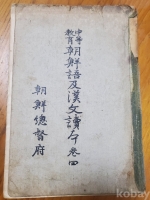 中等
教育 朝鮮語及漢文讀本 卷四
朝鮮總督府
kobay